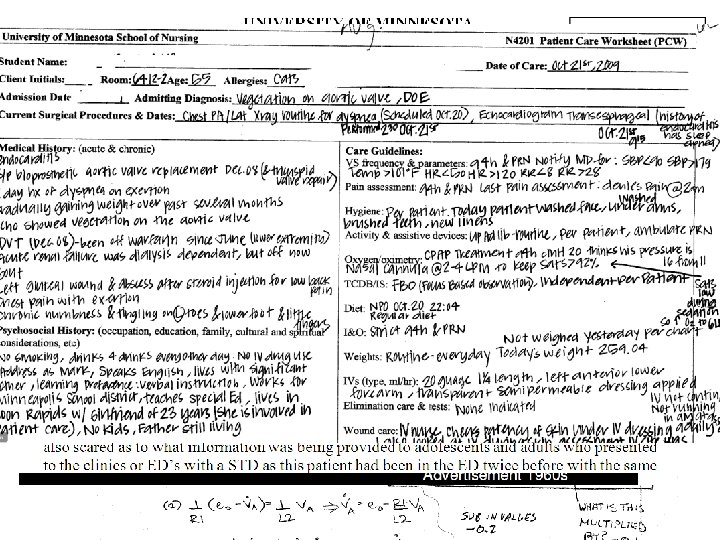 UNIVERSITY OF MINNESOTA
University of Minnesota School of Nursing
N4201 Patient Care Worksheet (PCW)
Student Name:
Date of Care: Oct 21st, 2009
Client Initials: Room: 6412-2 Age: 55 Allergies: Cats
Admission Date Admitting Diagnosis: Vegetation on aortic valve, DOE
Current Surgical Procedures & Dates: Chest PA/Lat Xray routine for dyspnea (Scheduled Oct. 20), Echocardiogram Transesophageal (history of
endocarditis
has sleep
apnea)
Performed 230 Oct. 21st
Oct. 21st
Medical History: (acute & chronic)
endocarditis
s/p bioprosthetic aortic valve replacement Dec. 08 (& tricuspid
valve repair)
day hx of dyspnea on exertion
gradually gaining weight over past several months
echo showed vegetation on the aortic valve
DVT (Dec 08) - been off warfarin since June (lower extremity)
acute renal failure was dialysis dependent, but off now
gout
left gluteal wound & abscess after steroid injection for low back
pain
chest pain with exertion
chronic numbness & tingling on L toes & lower foot & little
fingers
Psychosocial History: (occupation, education, family, cultural and spiritual
considerations, etc)
No smoking, drinks 4 drinks every other day. No IV drug use
Address as Mark, Speaks English, lives with significant
other, learning preference: verbal instruction, works for
Minneapolis School district, teaches Special Ed, lives in
Coon Rapids w/ Girlfriend of 23 years (she is involved in
patient care), No kids, Father still living
Care Guidelines:
VS frequency & parameters: q4h & PRN Notify MD for: SBP<90 SBP>179
Temp >101°F HR<50 HR>120 RR<8 RR>28
Pain assessment: q4h & PRN Last pain assessment: denies pain @ 2am
Hygiene: Per patient. Today patient washed face, washed underarms,
brushed teeth, new linens
Activity & assistive devices: UP Ad lib-routine, per patient, ambulate PRN
Oxygen/oximetry: CPAP Treatment q4h cmH20 thinks his pressure is
16 from 11
Nasal cannula @ 2-4 LPM to keep Sats >92%
TCDB/IS: FBO (Focus Based Observation), Independent per Patient
Sats
low
during
sedation
Diet: NPO Oct. 20 22:04
Regular diet
I&O: Strict q4h & PRN
Not weighed yesterday per chart
Weights: Routine-everyday Today's weight 259.04
IVs (type, ml/hr): 20 guage 1¼ length, left anterior lower
forearm, transparent semipermeable dressing applied
IV not contin.
Not running
Elimination care & tests: None Indicated
Wound care: IV nurse checks patency of skin under IV dressing q daily
also scared as to what information was being provided to adolescents and adults who presented
to the clinics or ED's with a STD as this patient had been in the ED twice before with the same
Advertisement 1960s
SUB IN VALUES
-0.2
WHAT IS THIS
MULTIPLIED
BY?